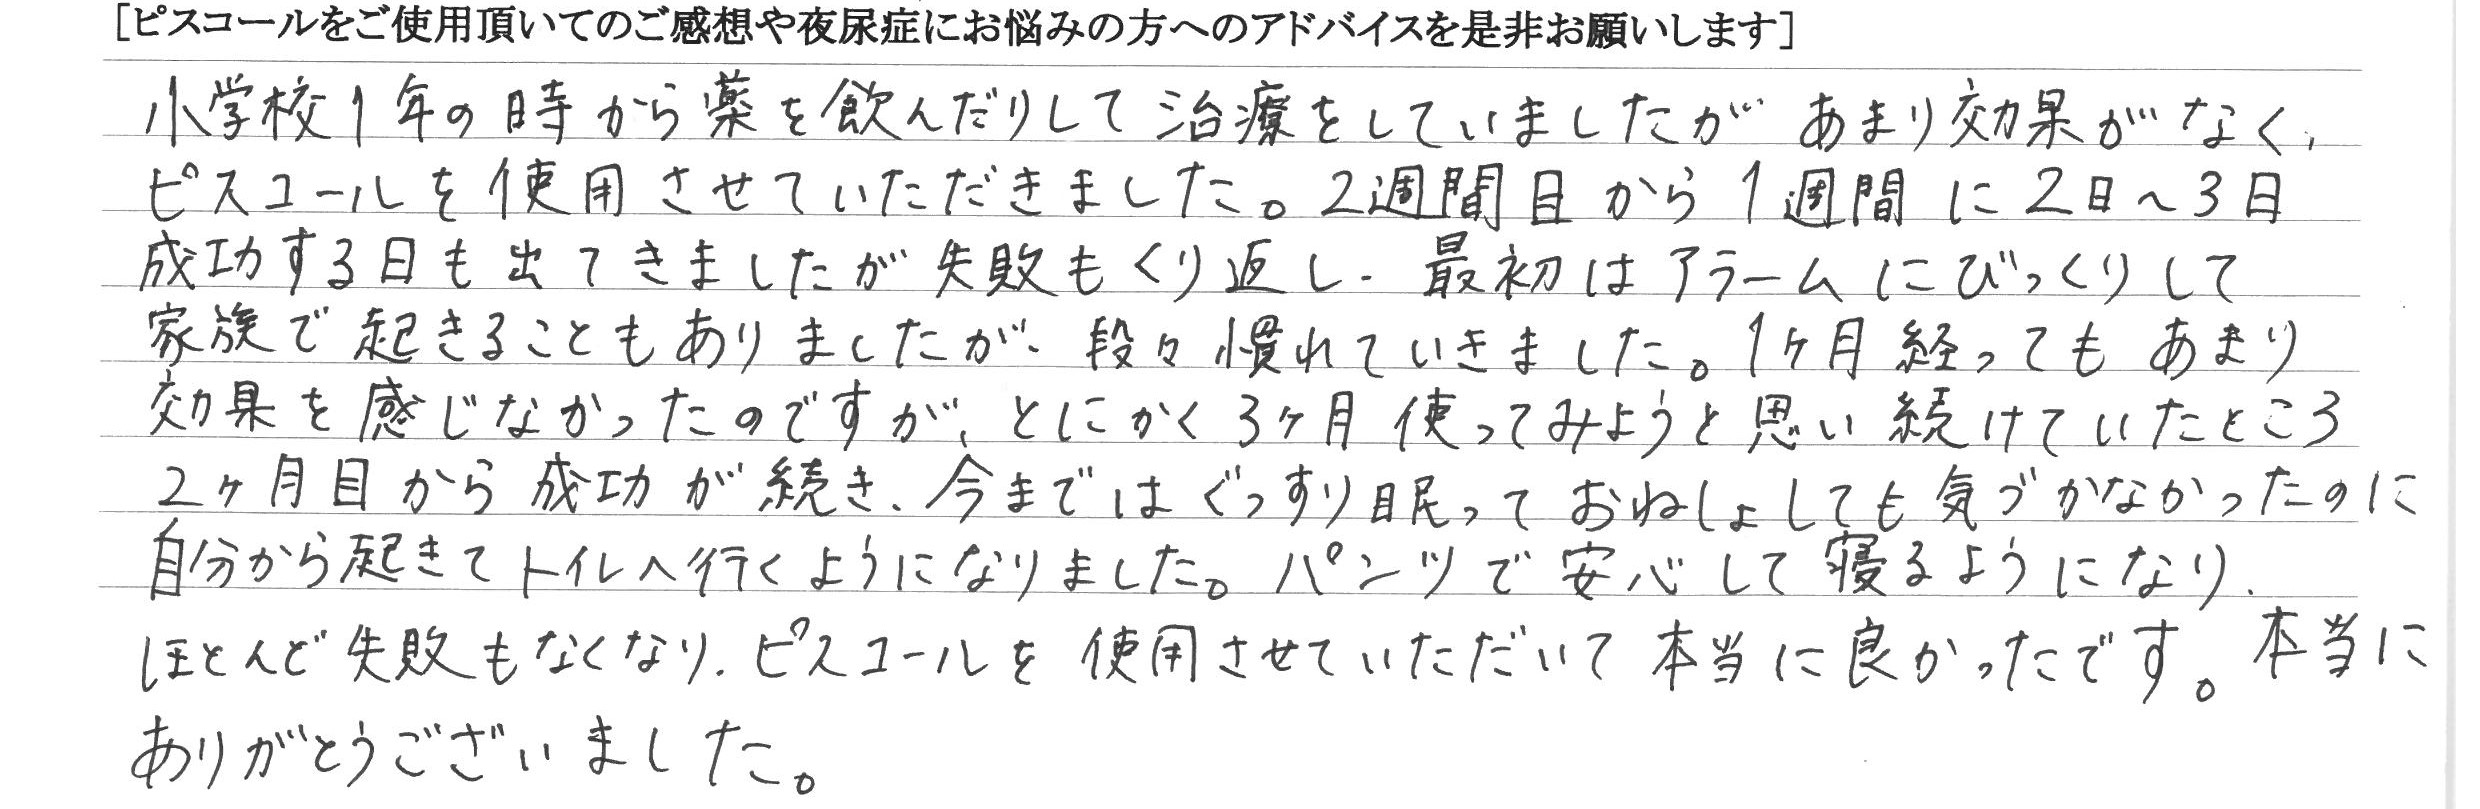 [ピスコールをご使用頂いてのご感想や夜尿症にお悩みの方へのアドバイスを是非お願いします]
小学校1年の時から薬を飲んだりして治療をしていましたがあまり効果がなく、
ピスコールを使用させていただきました。2週間目から1週間に2日~3日
成功する日も出てきましたが失敗もくり返し、最初はアラームにびっくりして
家族で起きることもありましたが、段々慣れていきました。1ヶ月経ってもあまり
効果を感じなかったのですが、とにかく3ヶ月使ってみようと思い続けていたところ
2ヶ月目から成功が続き、今まではぐっすり眠っておねしょしても気づかなかったのに
自分から起きてトイレへ行くようになりました。パンツで安心して寝るようになり、
ほとんど失敗もなくなり、ピスコールを使用させていただいて本当に良かったです。本当に
ありがとうございました。